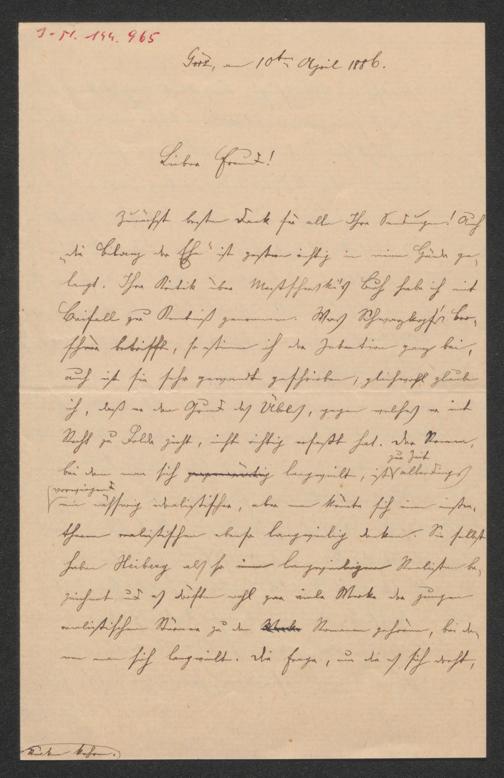 I.N. 144.965
Görz, am 10ten April 1886.
Lieber Freund!
Zunächst besten Dank für alle Ihre Sendungen! Auch
die ist gestern richtig in meine Hände ge-
langt. Ihre Kritik über Buch hab ich mit
Beifall zur Kenntniß genommen. Was Schwarzkopf's Bro-
schüre betrifft, so stimm ich der Intention ganz bei,
auch ist sie sehr gewandt geschrieben; gleichwohl glaube
ich, daß er den Grund des Übels, gegen welches er mit
Recht zu Felde zieht, nicht richtig erfaßt hat. Der Roman,
bei dem man sich langweilt, ist zu Zeit allerdings
vorwiegend ein idealistischer, aber man könnte sich einen
realistischen ebenso langweilig denken. Sie selbst
haben Heiberg als so langweiligen Realisten be-
zeichnet und es dürften wohl gar viele Werke der jungen
realistischen Stürmer zu den Romanen gehören, bei de-
nen man sich langweilt. Die Frage, um die es sich dreht,